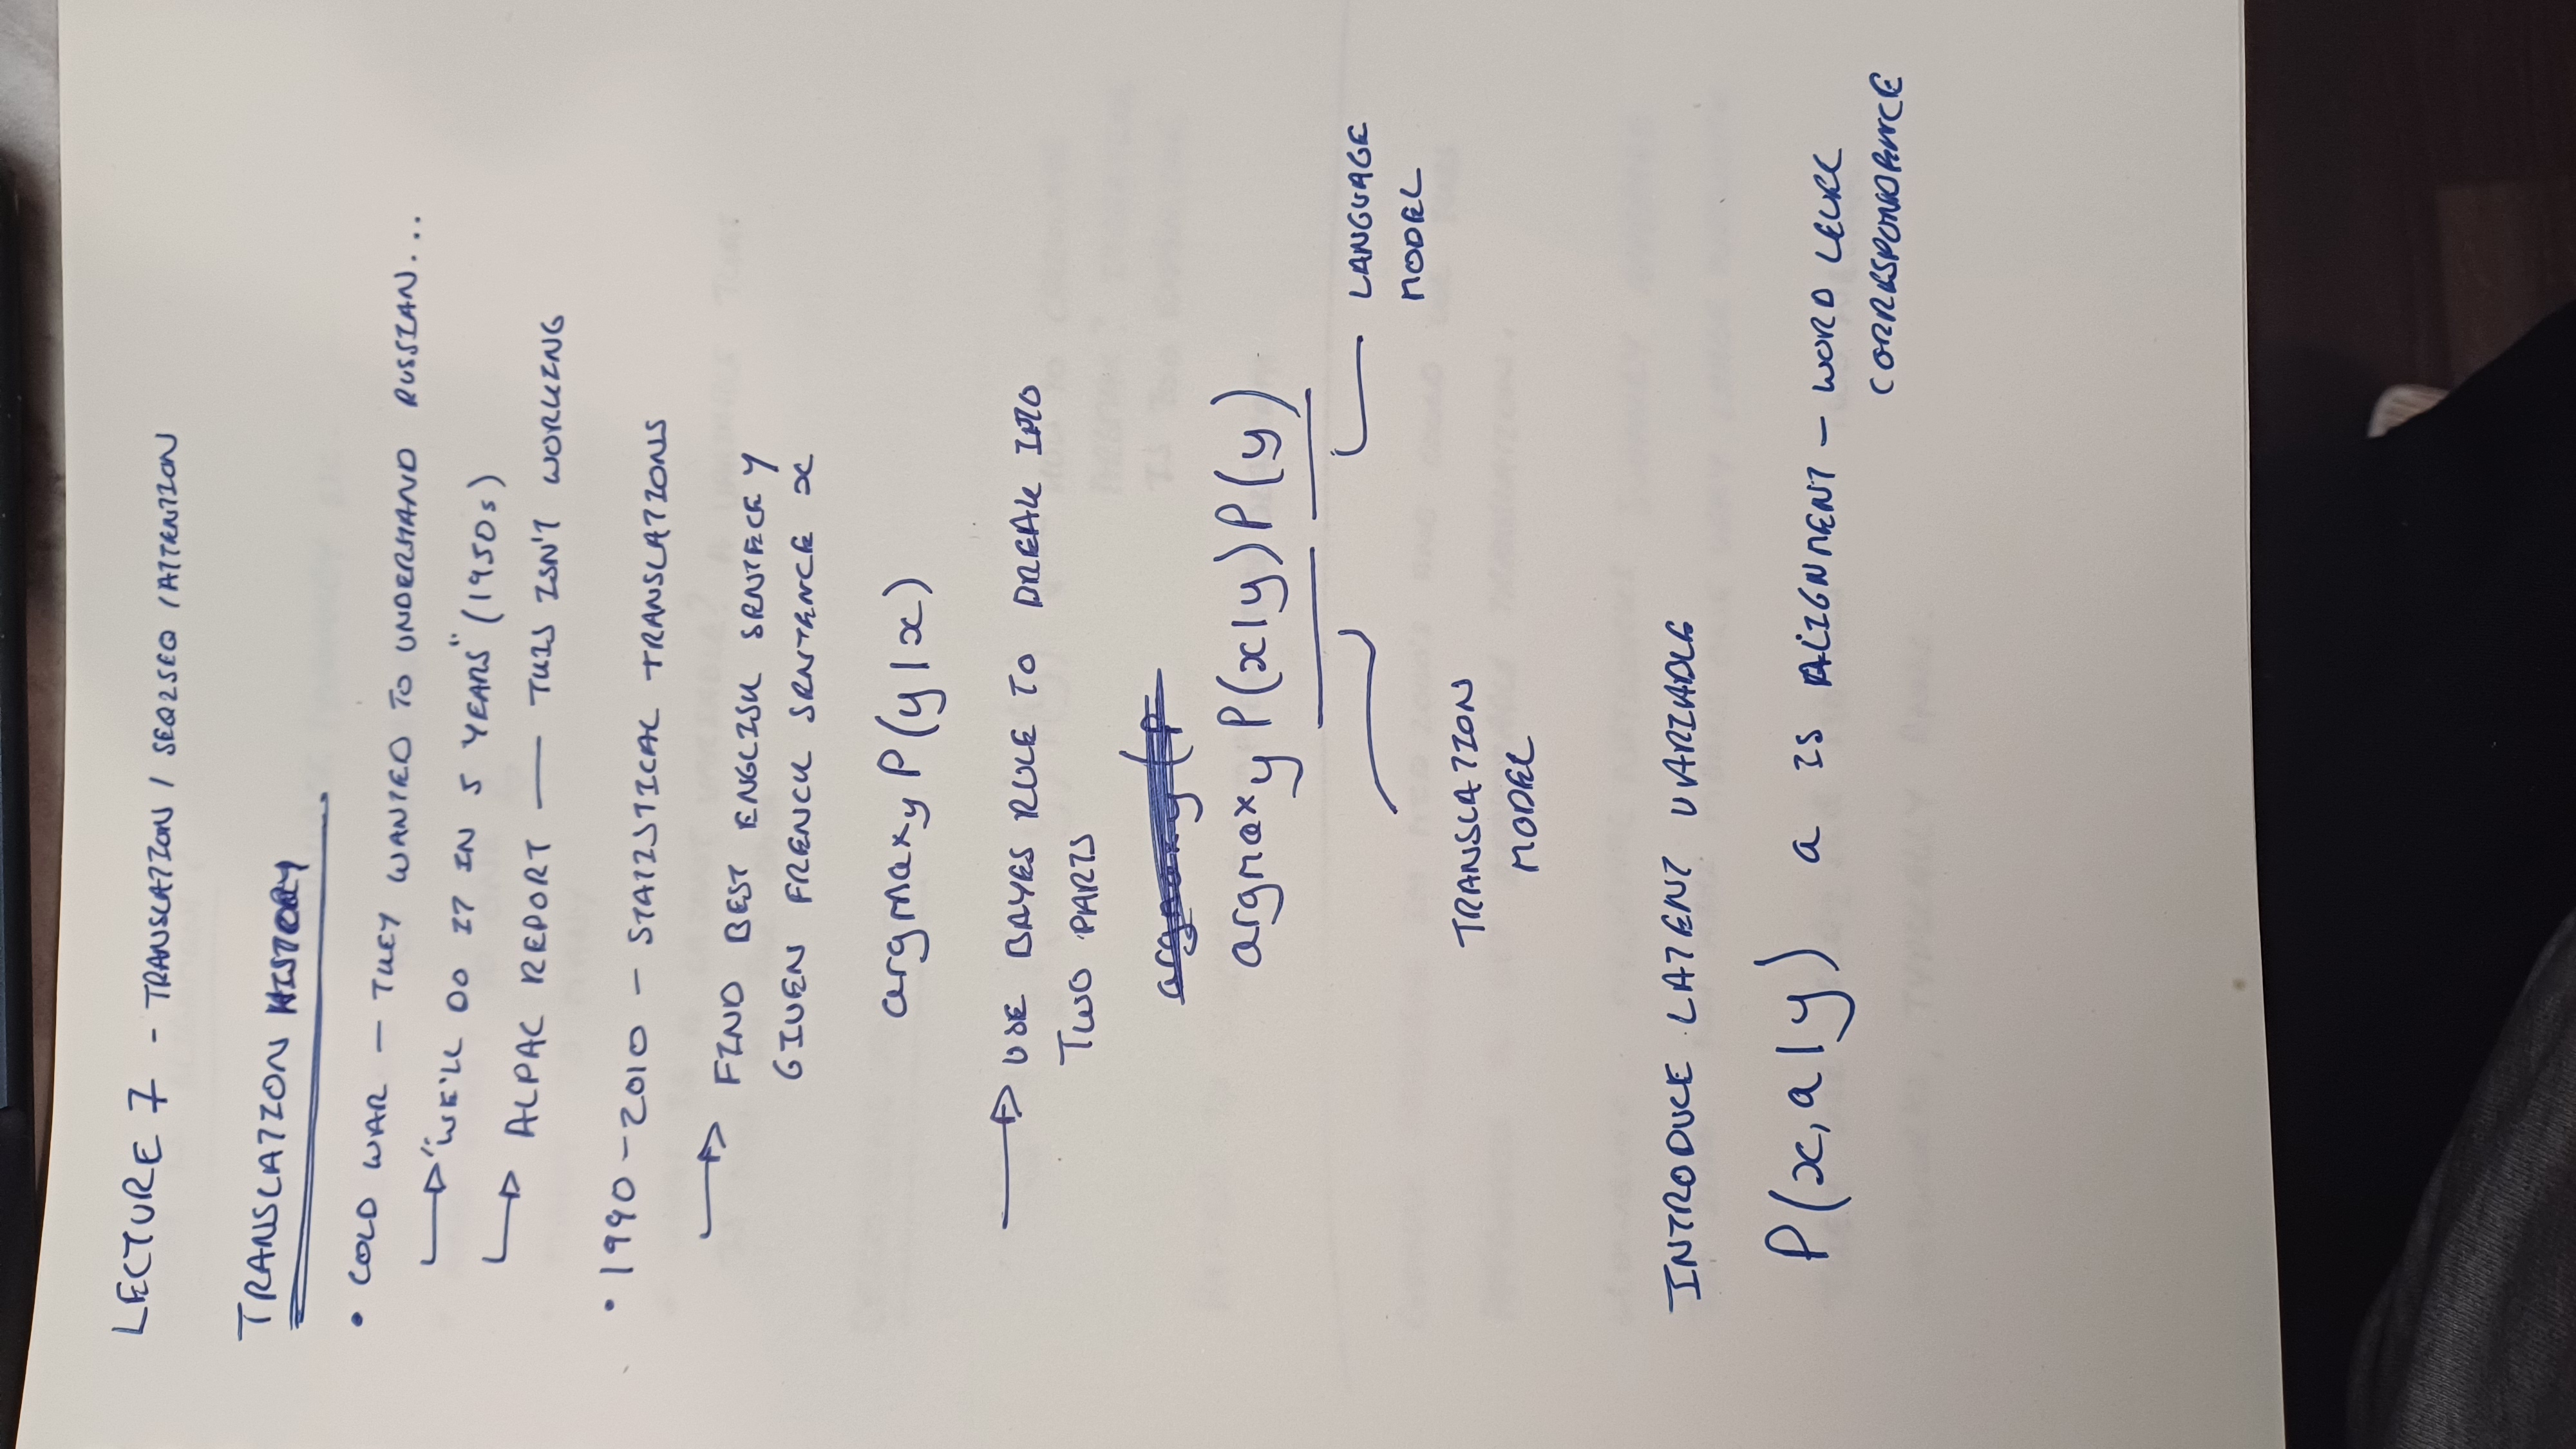 LECTURE 7 - TRANSLATION / SEQ2SEQ / ATTENTION
TRANSLATION HISTORY
• COLD WAR — THEY WANTED TO UNDERSTAND RUSSIAN...
→ "WE'LL DO IT IN 5 YEARS" (1950s)
→ ALPAC REPORT — THIS ISN'T WORKING
• 1990-2010 - STATISTICAL TRANSLATIONS
→ FIND BEST ENGLISH SENTECE y
GIVEN FRENCH SENTENCE x
argmax_y P(y|x)
→ USE BAYES RULE TO BREAK INTO
TWO PARTS
argmax_y P(x|y) P(y)
LANGUAGE
MODEL
TRANSLATION
MODEL
INTRODUCE LATENT VARIABLE
P(x, a | y) a IS ALIGNMENT - WORD LEVEL
CORRESPONDENCE